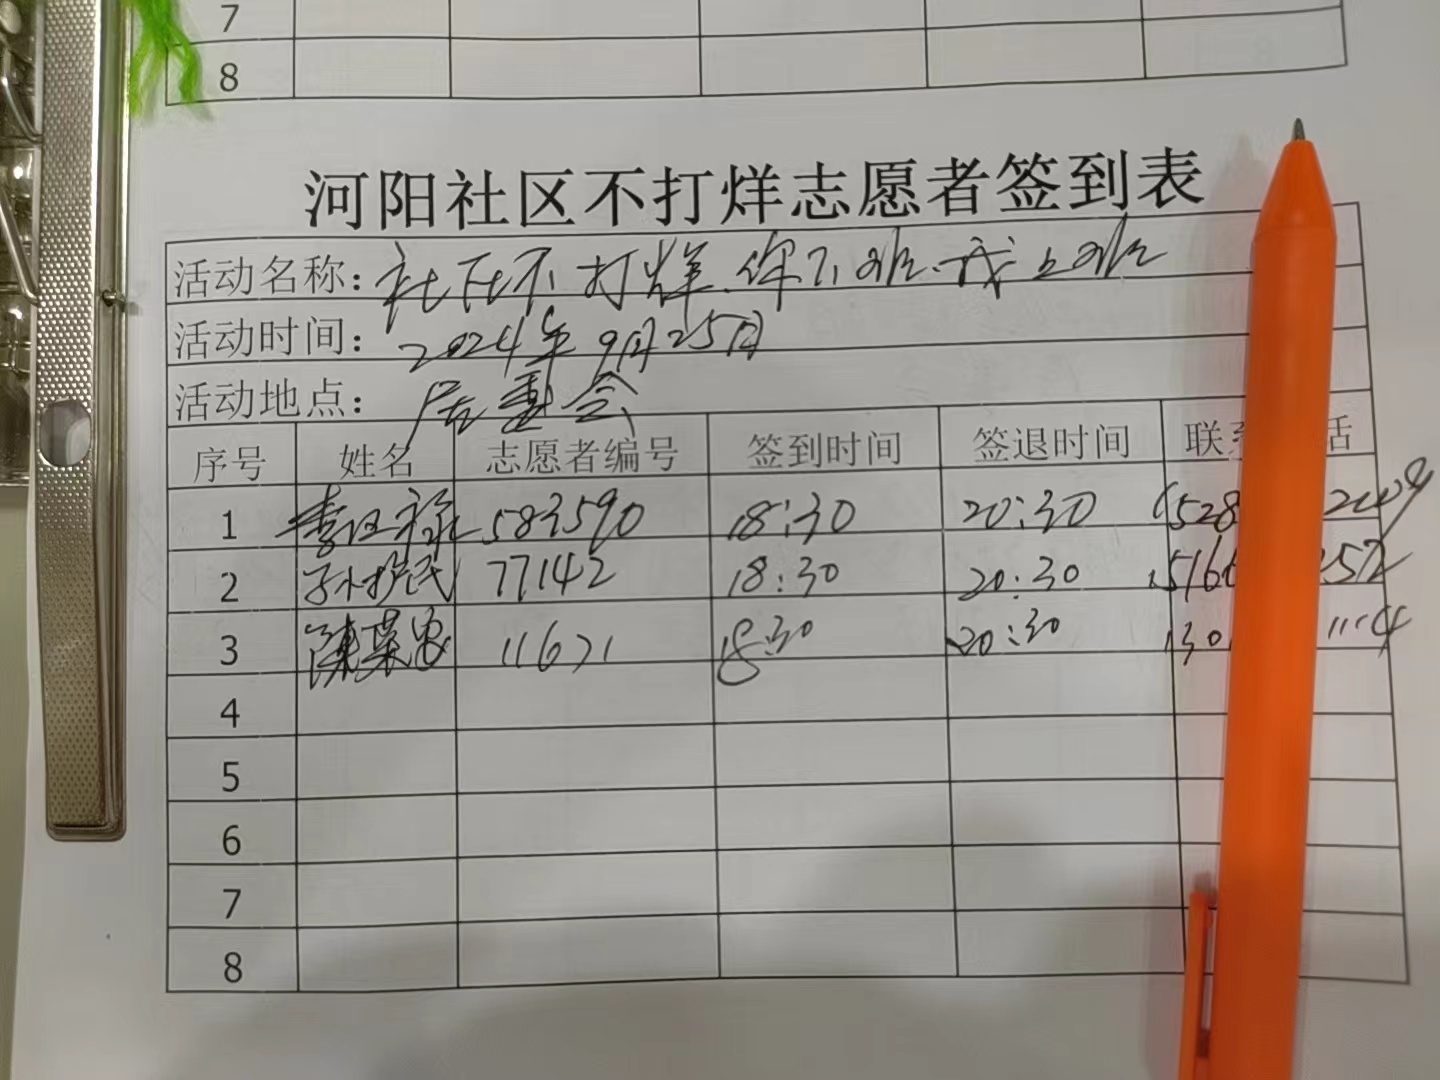 7
8
河阳社区不打烊志愿者签到表
活动名称：社区不打烊.你下班.我上班
活动时间：2024年9月25日
活动地点：居委会
序号 姓名 志愿者编号 签到时间 签退时间 联系 话
1 李 禄 583590 18:30 20:30 1528 2009
2 孙护民 77142 18:30 20:30 1516 252
3 陈菜 11671 18:30 20:30 130 1114
4
5
6
7
8